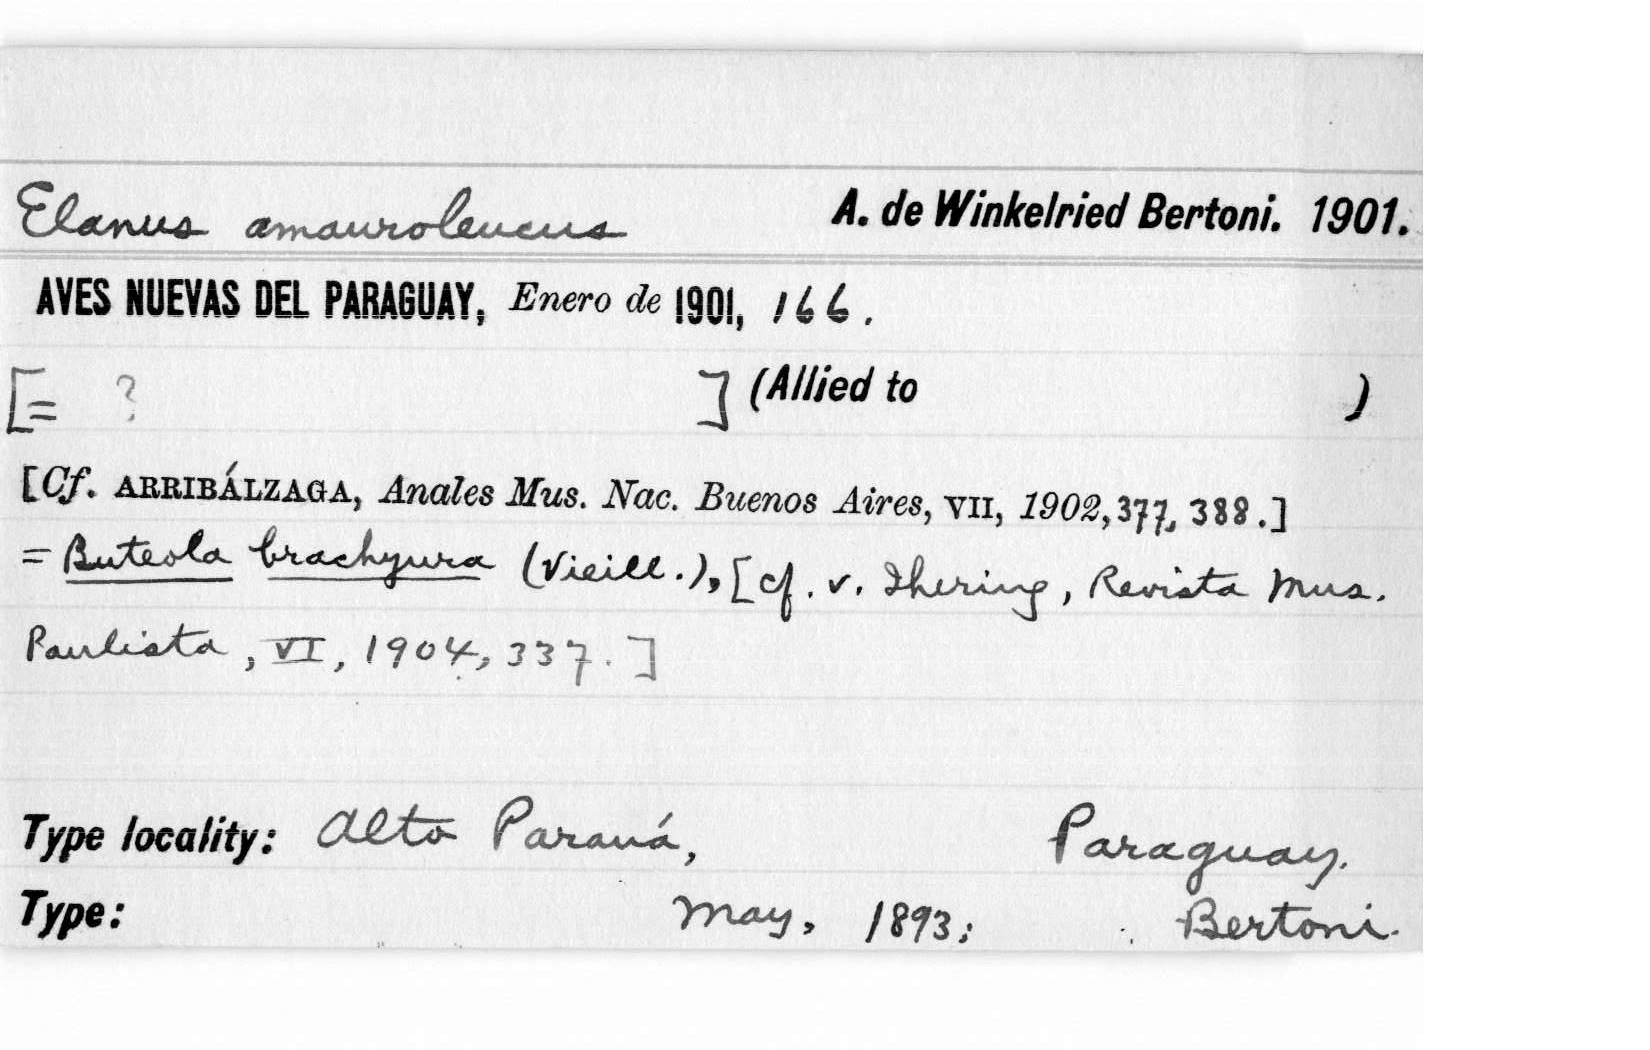 Elanus amauroleucus A. de Winkelried Bertoni. 1901.
AVES NUEVAS DEL PARAGUAY, Enero de 1901, 166.
[= ? ] (Allied to )
[Cf. ARRIBÁLZAGA, Anales Mus. Nac. Buenos Aires, VII, 1902, 377, 388.]
= Buteola brachyura (Vieill.), [cf. v. Ihering, Revista Mus.
Paulista, VI, 1904, 337.]
Type locality: Alto Paraná, Paraguay.
Type: May, 1893; Bertoni.